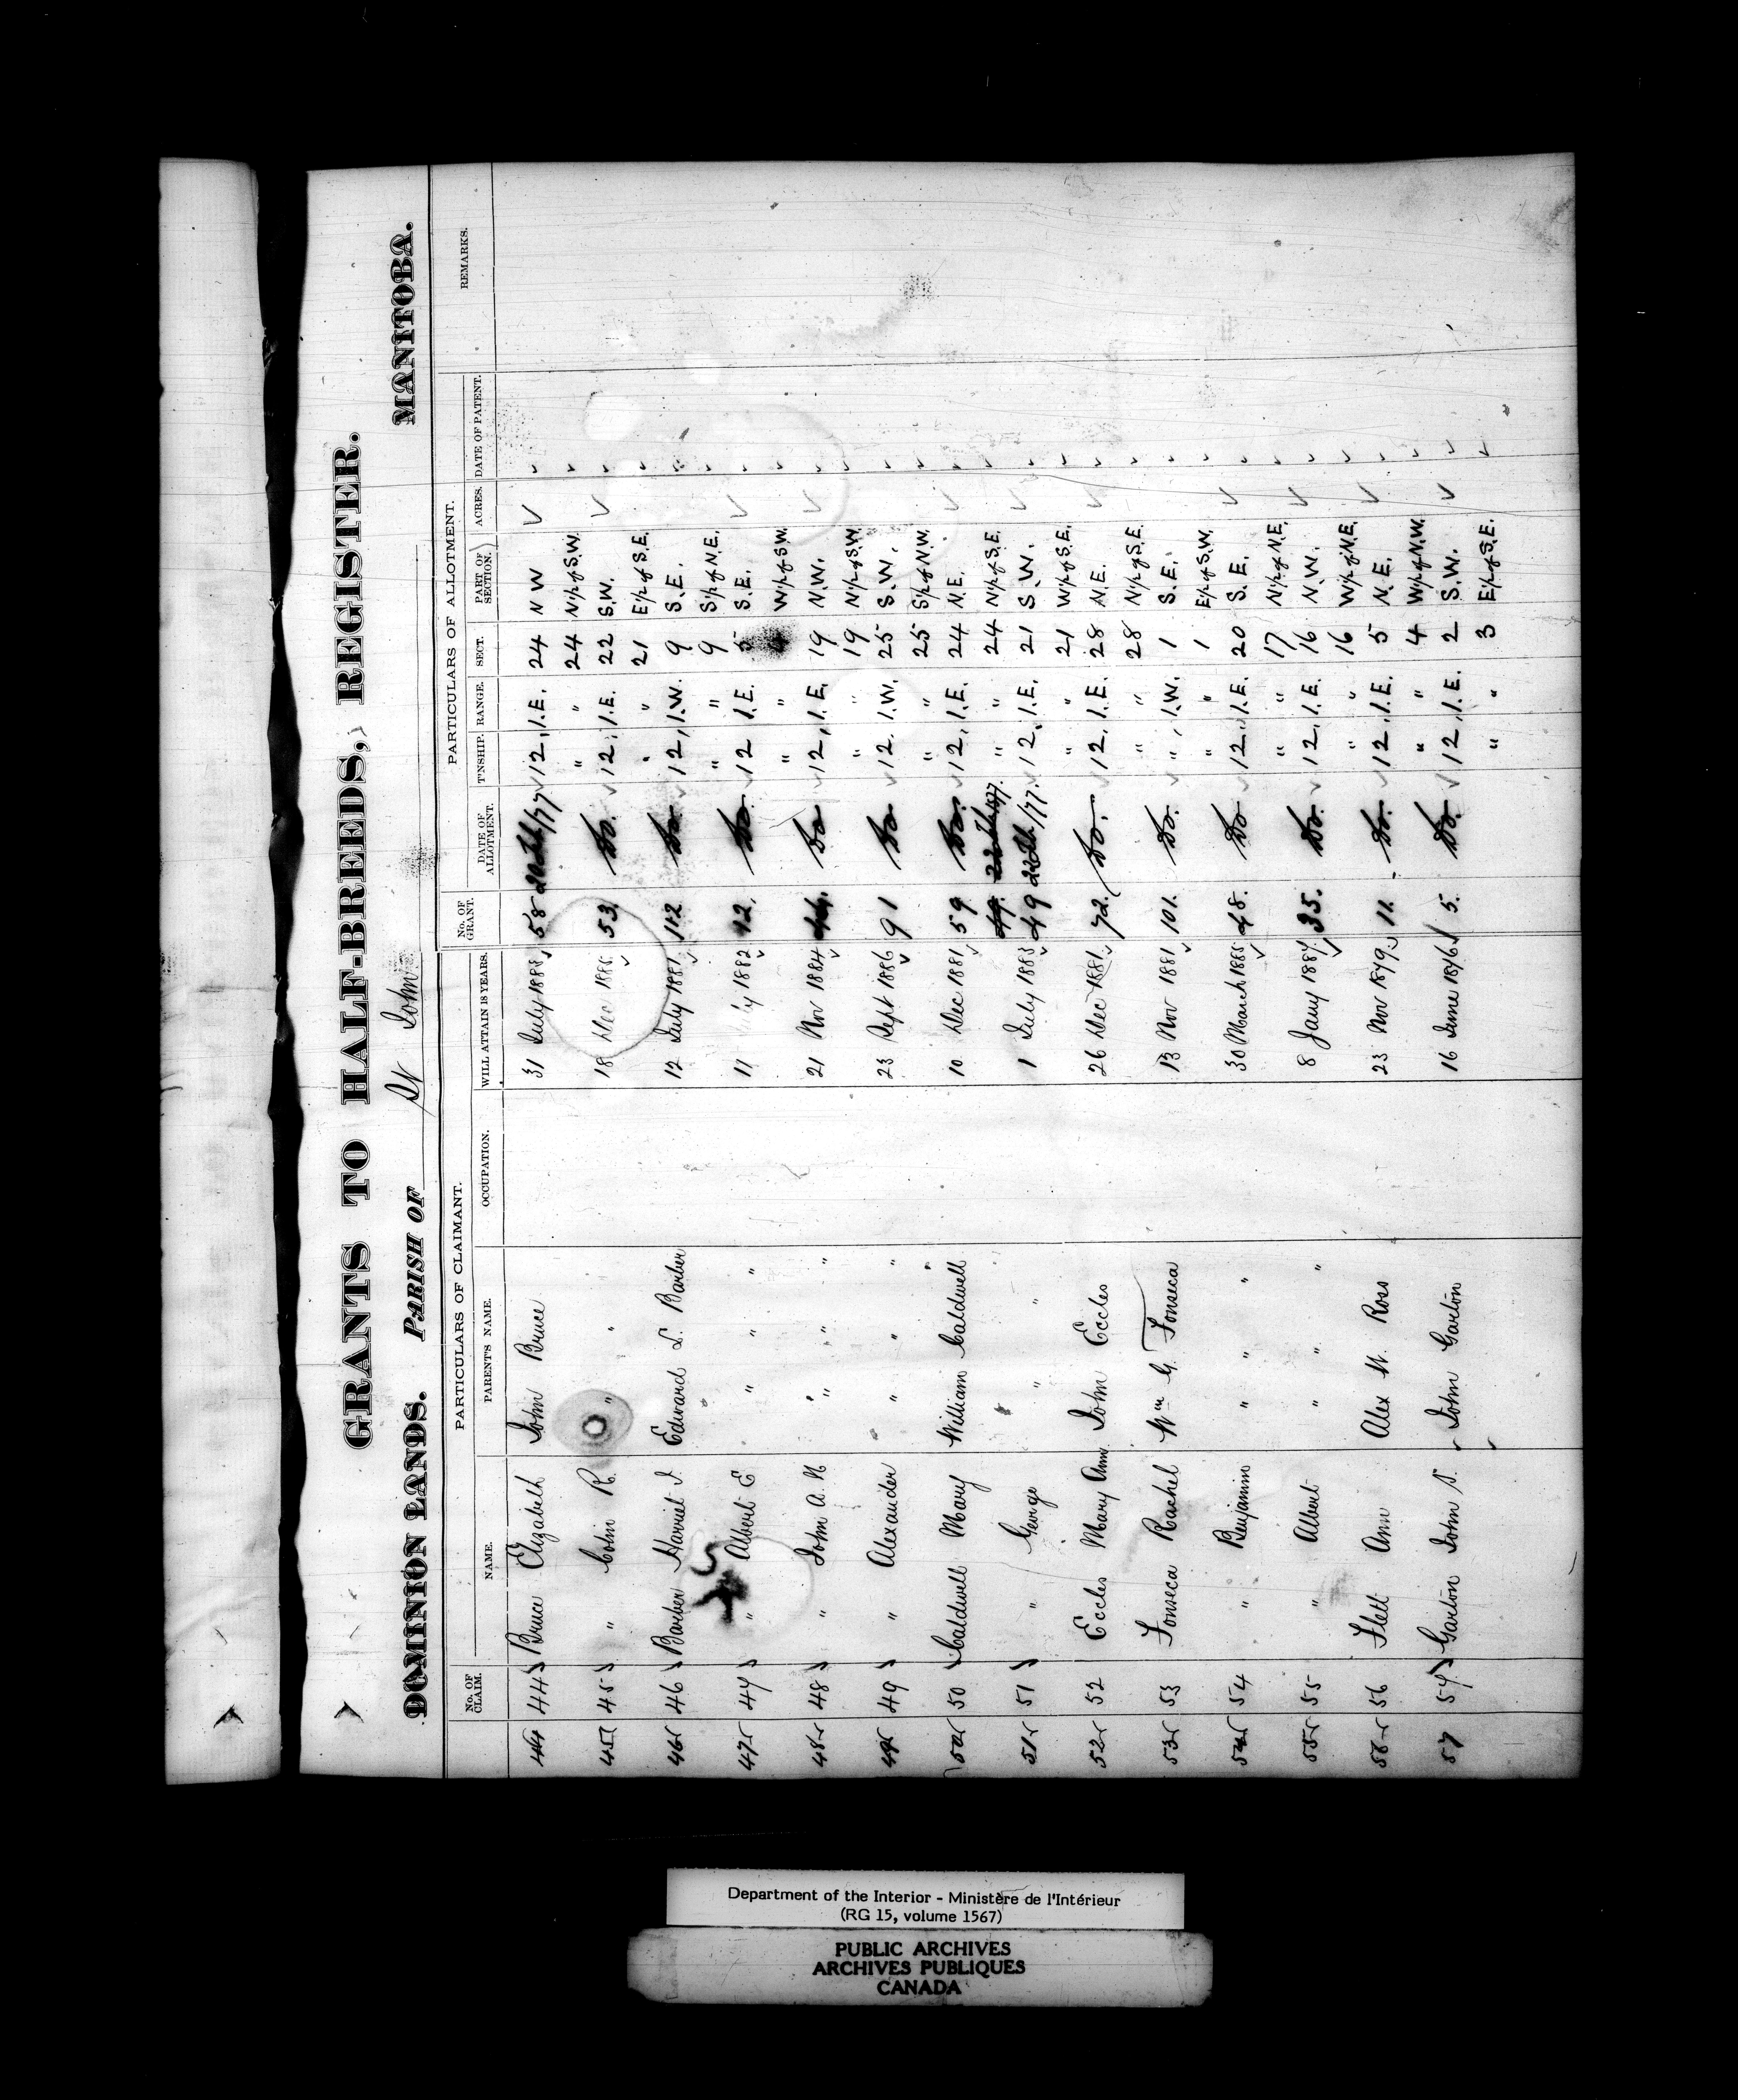 GRANTS TO HALF-BREEDS, REGISTER.
DOMINION LANDS. PARISH OF St John MANITOBA.
PARTICULARS OF CLAIMANT. PARTICULARS OF ALLOTMENT.
No. OF CLAIM. NAME. PARENT'S NAME. OCCUPATION. WILL ATTAIN 18 YEARS. No. OF GRANT. DATE OF ALLOTMENT. T'NSHIP. RANGE. SECT. PART OF SECTION. ACRES. DATE OF PATENT. REMARKS.
44 44 Bruce Elizabeth John Bruce 31 July 1883 58 /77 12 1.E. 24 N W
" " 24 N½ of S.W.
45 45 " Colin R. " " 18 Dec 53. Do. 12 1.E. 22 S.W.
" " 21 E½ of S.E.
46 46 Barber Harriet I Edward L. Barber 12 July 1881 112 Do 12 1.W. 9 S.E.
" " 9 S½ of N.E.
47 47 " Albert E " " " 11 July 1882 12. Do. 12 1.E. 5 S.E.
" " W½ of S.W.
48 48 " John A. N " " " 21 Nov 1884 Do 12 1.E. 19 N.W.
" " 19 N½ of S.W.
49 49 " Alexander " " " 23 Sept 1886 91 Do 12. 1.W. 25 S.W.
" " 25 S½ of N.W.
50 50 Caldwell Mary William Caldwell 10 Dec 1881 59 Do. 12 1.E. 24 N.E.
49. 1877. " " 24 N½ of S.E.
51 51 " George " " 1 July 1883 49 /77. 12. 1.E. 21 S.W.
" " 21 W½ of S.E.
52 52 Eccles Mary Ann John Eccles 26 Dec 1881 72. Do. 12. 1.E. 28 N.E.
" " 28 N½ of S.E.
53 53 Fonseca Rachel Wm G. Fonseca 13 Nov 1881 101. Do. " 1.W. 1 S.E.
" " 1 E½ of S.W.
54 54 " Benjamin " " " 30 March 1885 48. Do 12. 1.E. 20 S.E.
" " 17 N½ of N.E.
55 55 " Albert " " " 8 Jany 1887 35. Do. 12. 1.E. 16 N.W.
" " 16 W½ of N.E.
56 56 Flett Ann Alex W. Ross 23 Nov 1879 11. Do. 12. 1.E. 5 N.E.
" " 4 W½ of N.W.
57 57 Garton John S. John Garton 16 June 1876 5. Do. 12. 1.E. 2 S.W.
" " 3 E½ of S.E.
Department of the Interior - Ministère de l'Intérieur
(RG 15, volume 1567)
PUBLIC ARCHIVES
ARCHIVES PUBLIQUES
CANADA